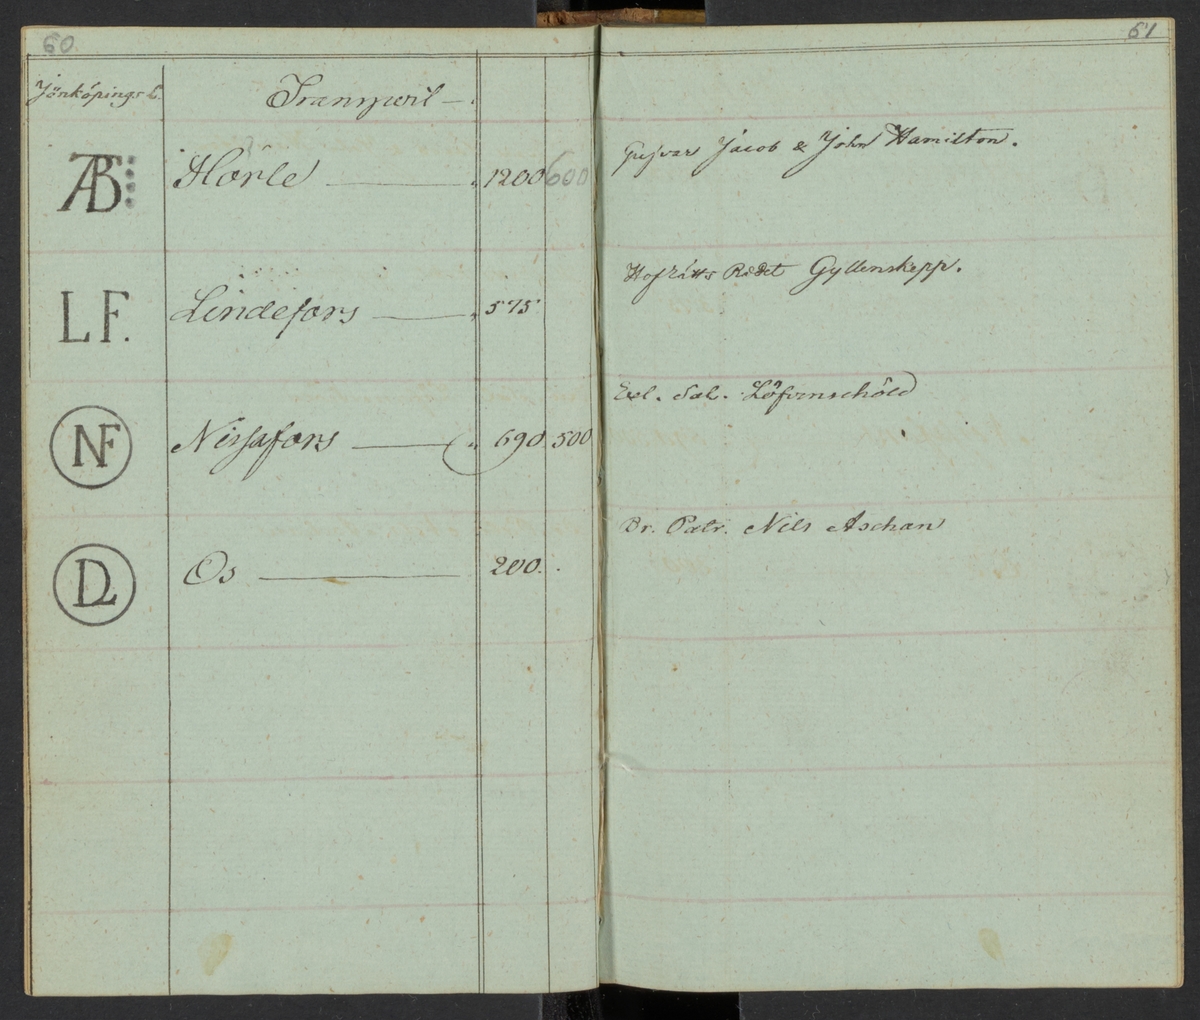 60
61
Jönköpings L.
Transport
AB
Hörle 1200 600
Jacob & John Hamilton.
LF.
Lindefors 575
Hofrätts Rådet Gyllenskepp.
NF
Nissafors 690 500
Exl. Sal. Löfvenschöld
DL
Os 200.
Br. Patr. Nils Aschan